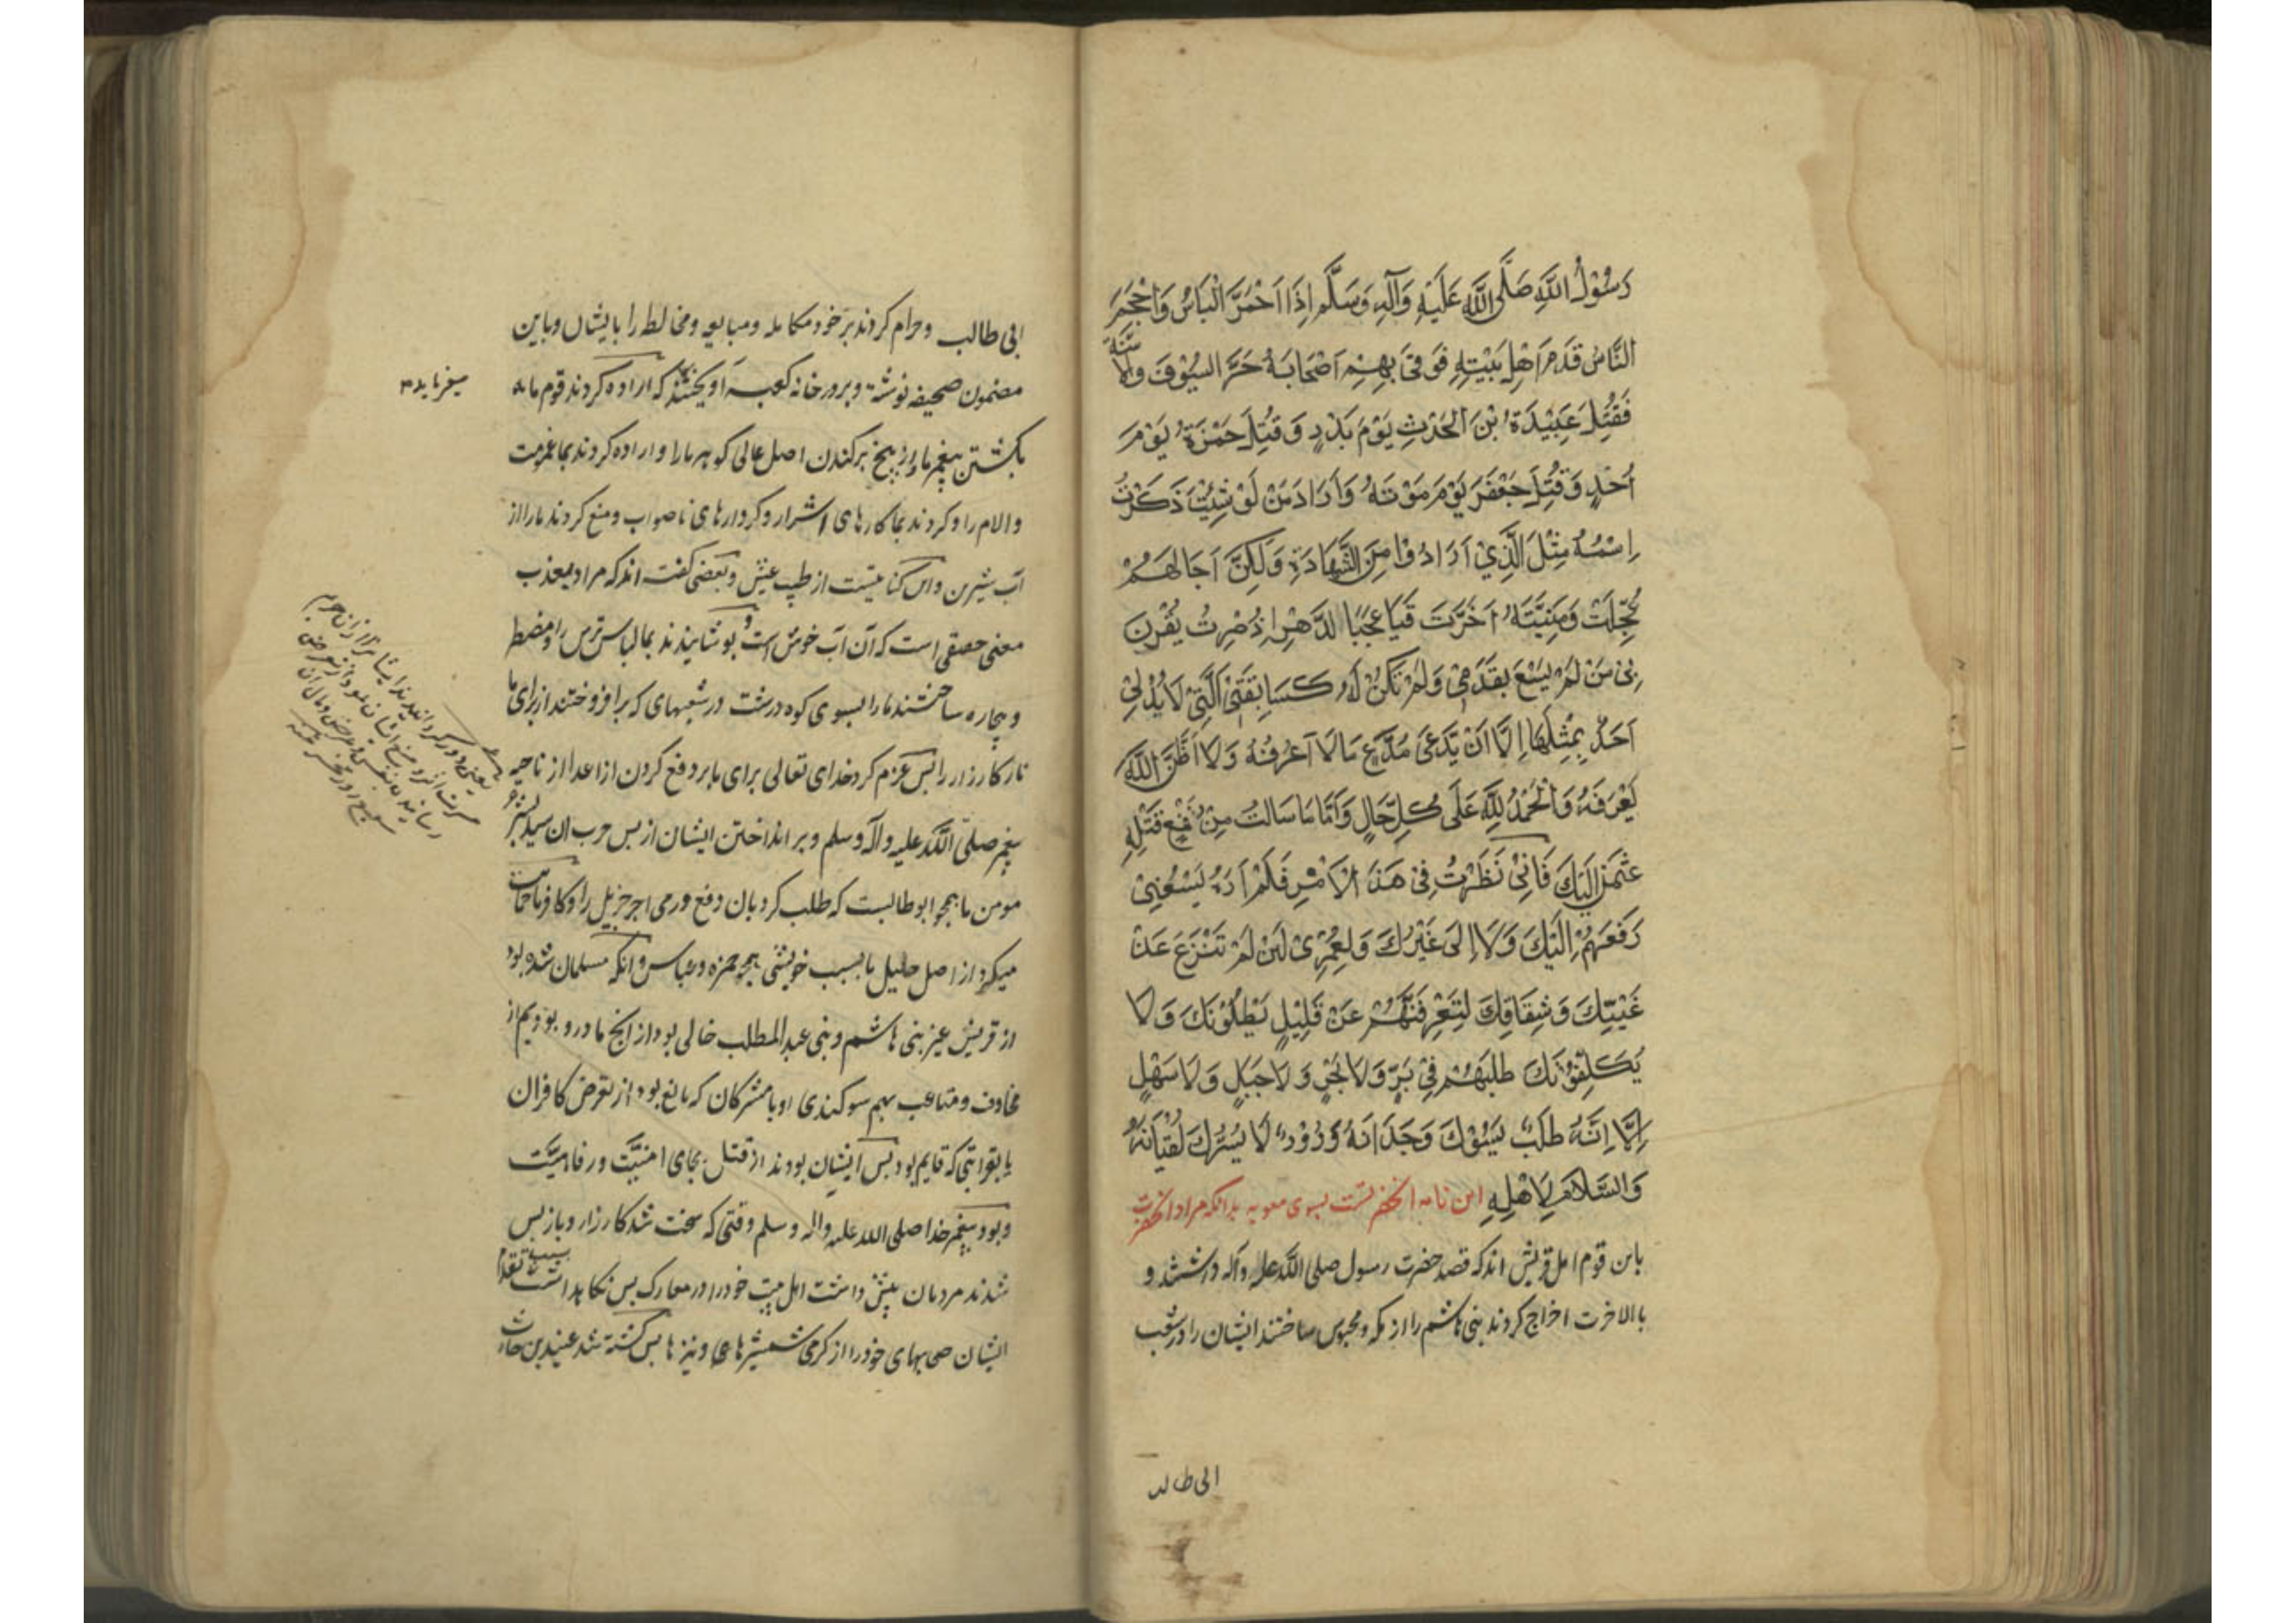 رَسُوْلُ اللَّهِ صَلَّی اللَّهُ عَلَیْهِ وَآلِهِ وَسَلَّم اِذَا اَحْمَرَّ الْبَاسُ وَاَحْجَمَ
النَّاسُ قَدَّمَ اَهْلَ بَیْتِهِ فَوَقیٰ بِهِمْ اَصْحَابَهُ حَرَّ السُّیُوْفِ وَالا سَنَّةِ
فَقُتِلَ عُبَیْدَةُ بْنُ الْحَرْثِ یَوْمَ بَدْرٍ وَقُتِلَ حَمْزَةُ یَوْمَ
اُحُدٍ وَقُتِلَ جَعْفَرُ یَوْمَ مَوْتَهُ وَاَرَادَ مَنْ لَوْ شِئْتُ ذَکَرْتُ
اِسْمُهُ مِثْلَ الَّذِیْ اَرَادُوْا مِنَ الشَّهَادَةِ وَلَکِنَّ اَجَالَهُمْ
عُجِّلَتْ وَمَنِیَّتَهُ اُخِّرَتْ فَیَا عَجَبًا لِلدَّهْرِ اِذْ صِرْتُ یُقْرَنُ
بِیْ مَنْ لَمْ یَسْعَ بِقَدَمِیْ وَلَمْ تَکُنْ لَهُ کَسَابِقَتِیْ الَّتِیْ لَا یُدْلِیْ
اَحَدٌ بِمِثْلِهَا اِلَّا اَنْ یَدَّعِیَ مُدَّعٍ مَا لَا اَعْرِفُهُ وَلَا اَظُنُّ اللَّهَ
یَعْرِفُهُ وَالْحَمْدُ لِلَّهِ عَلَی کُلِّ حَالٍ وَاَمَّا مَا سَالْتَ مِنْ دَفْعِ قَتَلَةِ
عُثْمَنَ اِلَیْکَ فَاِنِّیْ نَظَرْتُ فِیْ هَذَا الْاَمْرِ فَلَمْ اَرَهُ یَسَعُنِیْ
دَفْعُهُمْ اِلَیْکَ وَلَا اِلَی غَیْرِکَ وَلَعَمْرِیْ لَئِنْ لَمْ تَنْزِعْ عَنْ
غَیِّکَ وَشِقَاقِکَ لَتَعْرِفَنَّهُمْ عَنْ قَلِیْلٍ یَطْلُبُوْنَکَ وَلَا
یُکَلِّفُوْنَکَ طَلَبَهُمْ فِیْ بَرٍّ وَلَا بَحْرٍ وَلَا جَبَلٍ وَلَا سَهْلٍ
اِلَّا اِنَّهُ طَلَبٌ یَسُوْئُکَ وِجْدَانُهُ وَزَوْرٌ لَا یَسُرُّکَ لُقْیَانُهُ
وَالسَّلَامُ لِاَهْلِهِ این نامه آنحضرتست بسوی معویه بدانکه مراد آنحضرت
باین قوم اهل قریش اند که قصد حضرت رسول صلی الله علیه وآله داشتند و
بالاخرت اخراج کردند بنی هاشم را از مکه و محبوس ساختند ایشان را در شعب
ابی طالب
ابی طالب وحرام کردند بر خود مکامله ومبایعه ومخالطه را بایشان وباین
مضمون صحیفه نوشته وبر در خانه کعبه آویختند که اراده کردند قوم ما به
میفرماید
بکشتن پیغمبر ما واز بیخ برکندن اصل عالی کوهر ما را واراده کردند بما
والام را وکردند بما کارهای اشرار وکردارهای ناصواب ومنع کردند ما را از
آب شیرین واین کنایتست از طیب عیش وبعضی گفته اند که مراد بعذب
معنی حقیقی است که آن آب خوش است و پوشانیدند بما لباس ترس را ومضطر
وبیچاره ساختند ما را بسوی کوه درشت در شبهای که برافروختند از برای ما
نار کارزار را پس عزم کرد خدای تعالی برای ما بر دفع کردن از اعدا از ناحیه
پیغمبر صلی الله علیه وآله وسلم وبر انداختن ایشان از پس حرب آن سید البشر
مومن ما همچو ابوطالبست که طلب کرد بان دفع ورمی اجر جزیل را وکافر ما حمایت
میکرد از اصل جلیل ما بسبب خویشی همچو حمزه وعباس وآنکه مسلمان شده بود
از قریش غیر بنی هاشم وبنی عبد المطلب خالی بود از آنچ ما در او بودیم از
مخاوف ومتاعب بهم سوکندی او با مشرکان که مانع بود از تعرض کافران
یا بقرابتی که قایم بود پس ایشان بودند از قتل بجای امنیت ورفاهیت
وبود پیغمبر خدا صلی الله علیه واله وسلم وقتی که سخت شد کارزار وباز پس
شدند مردمان پیش داشت اهل بیت خود را در معارک پس نگاه داشت بسبب تقدم
ایشان صحابهای خود را از گرمی شمشیرها ونیزها پس کشته شد عبید بن حارث